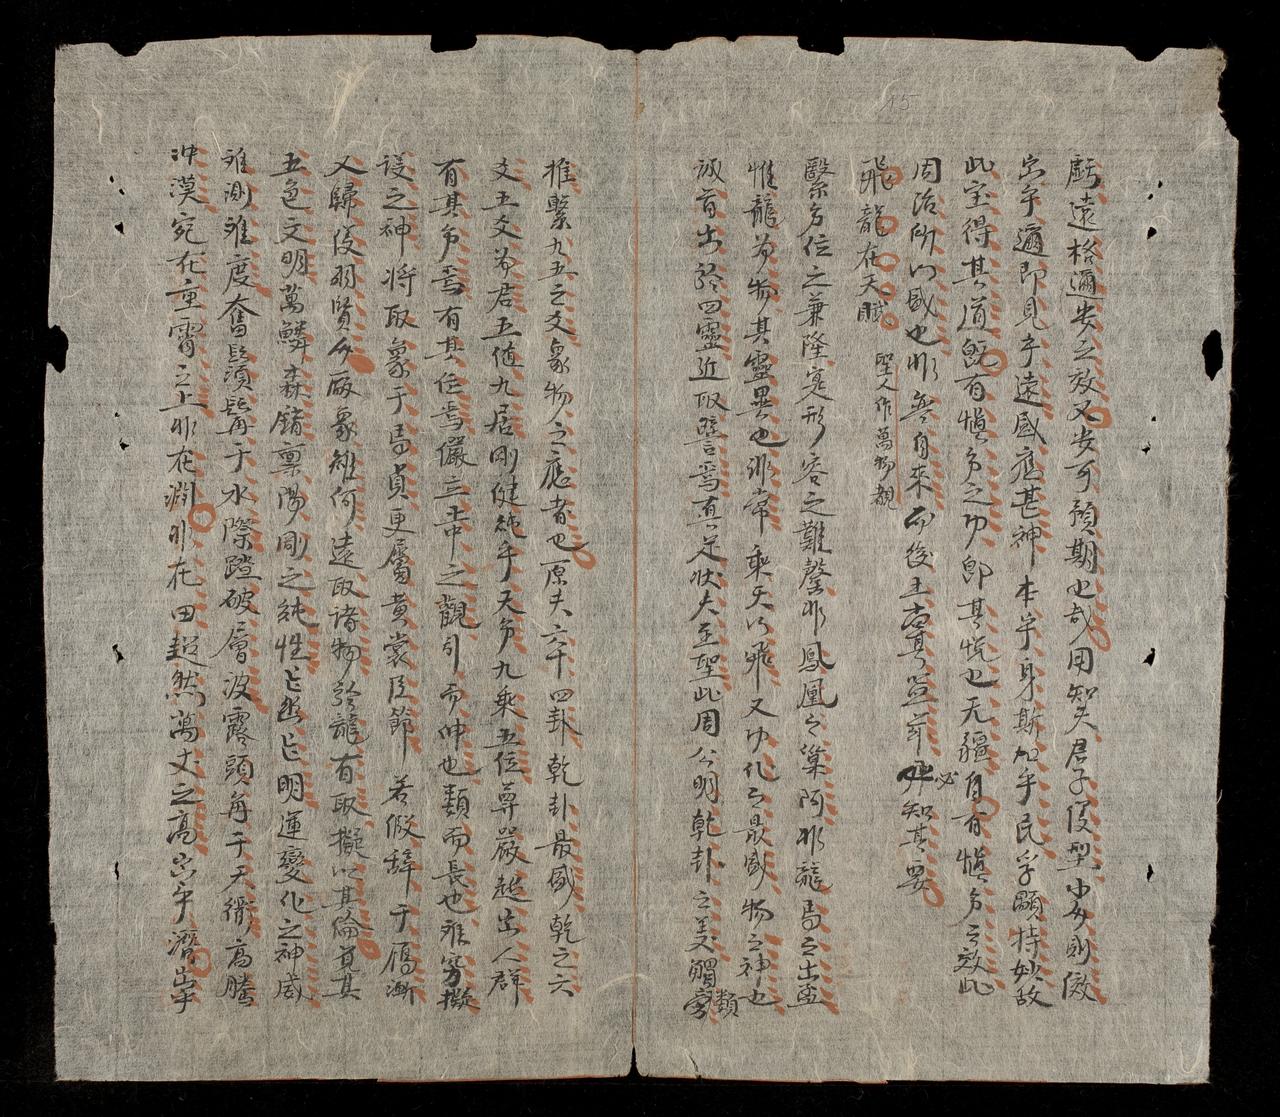 遠格邇安之效又安可預期也哉用知夫君子儀型少多則傚
乎邇即見乎遠感應甚神本乎身斯加乎民孚顒持妙故
此室得其道既有慎多之功即其悅也无疆自有慎多之效此
周治所以盛也非無自來而後王當知其要
飛龍在天賦 聖人作萬物覩
繫多位之兼隆寔形容之難罄非鳳凰之巢阿非龍馬之出
惟龍為物其靈異也非常乘天以飛又功化之最盛物之神也
誠首出於四靈近取譬焉直足狀夫至聖此周公明乾卦之美觸類
推繫九五之爻象物之應者也原夫六十四卦乾卦最盛乾之六
爻五爻為君五值九居剛健純乎天多九乘五位尊嚴越出人群
有其多焉有其任焉儼立中之觀引而伸也類而長也難旁擬
議之神將取象于馬貞更屬黃裳臣節若假辭于鴈漸
又歸儀羽賢人厥象維何遠取諸物於龍有取擬以其倫負其
五色文明萬鱗森錯稟陽剛之純性亡幽亡明運變化之神威
难測难度奮鬚髯于水際蹬破層波露頭角于天衢高騰
沖漠宛在重霄之上非在淵非在田超然萬丈之高乎